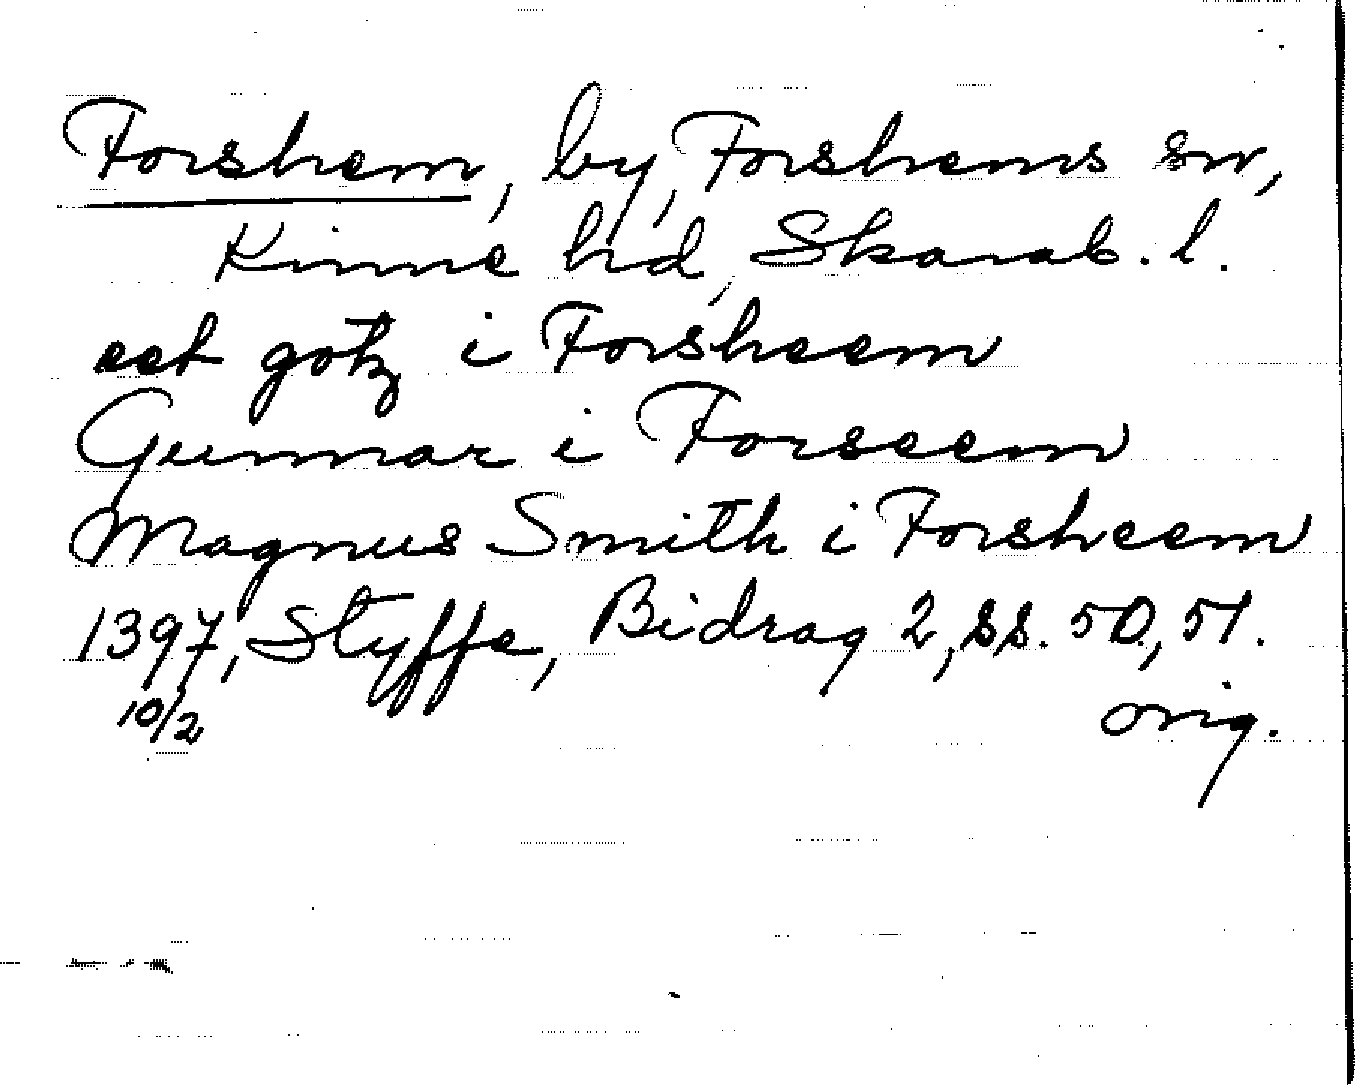 Forshem, by, Forshems sn,
Kinne hd, Skarab. l.
eet götz i Forsheem
Gunnar i Forseem
Magnus Smith i Forsheem
1397, Styffe, Bidrag 2, ss. 50, 51.
10/2 orig.